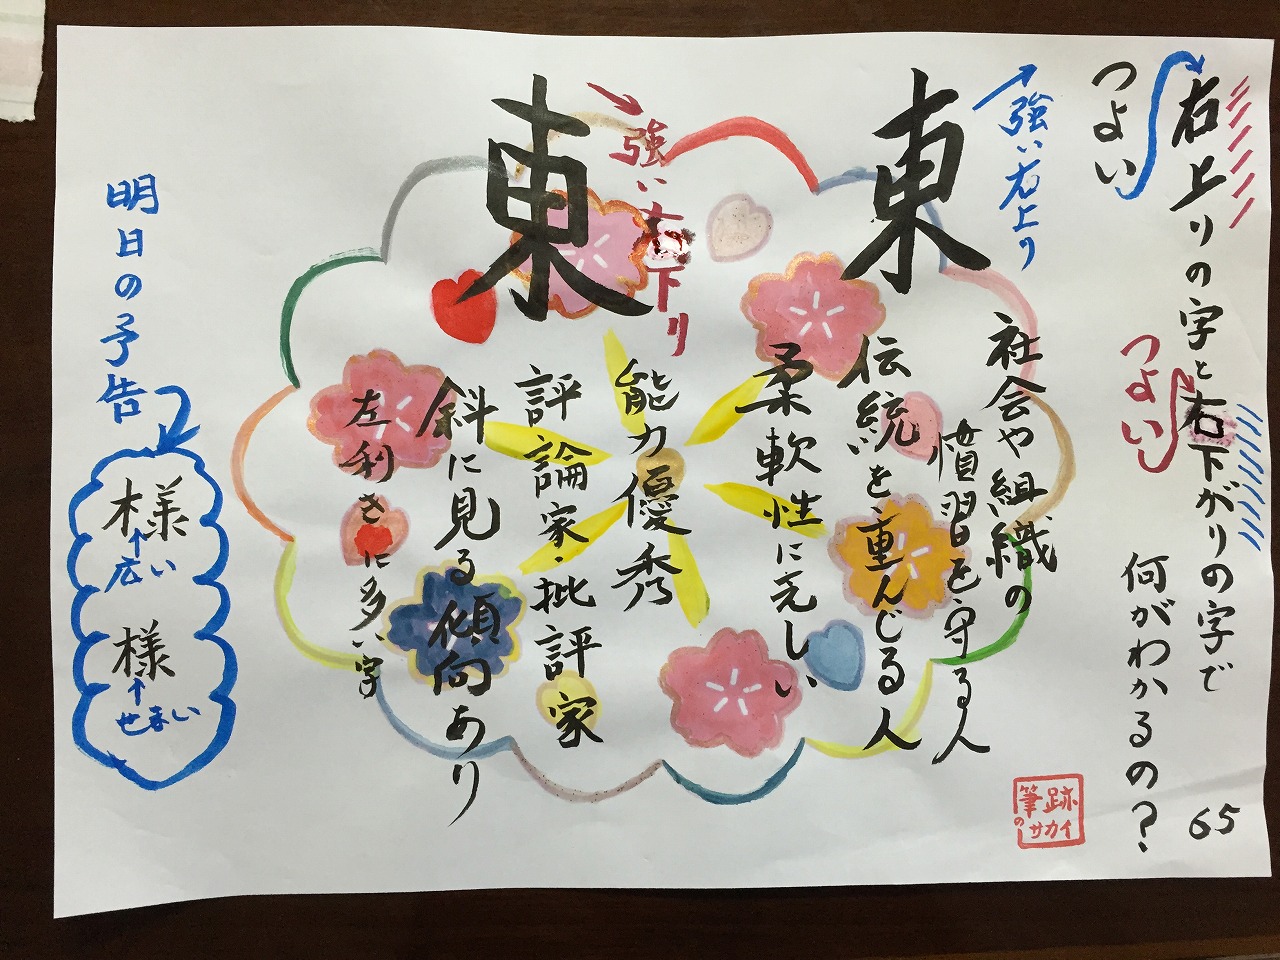 つよい右上りの字とつよい右下がりの字で
何がわかるの?
65
強い右上り
東
社会や組織の
慣習を守る人
伝統を重んじる人
柔軟性に乏しい
強い右下り
東
能力優秀
評論家・批評家
斜に見る傾向あり
左利きに多い字
明日の予告
様
↑
広い
様
↑
せまい
筆跡
のサカイ